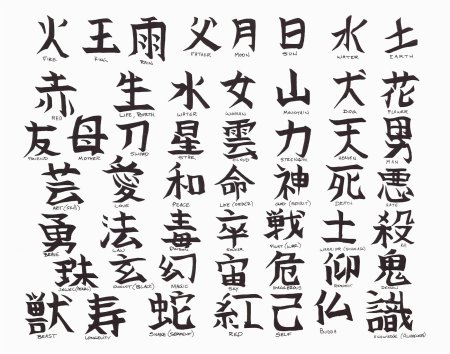 火 王 雨 父 月 日 水 土
FIRE KING RAIN FATHER MOON SUN WATER EARTH
赤 生 水 女 山 犬 花
RED LIFE, BIRTH WATER WOMAN MOUNTAIN DOG FLOWER
友 母 刀 星 雲 力 天 男
FRIEND MOTHER SWORD STAR CLOUD STRENGTH HEAVEN MAN
芸 愛 和 命 神 死 悪
LOVE PEACE DEATH HATE
勇 法 毒 卒 戦 士 殺
BRAVE LAW POISON
珠 玄 幻 宙 危 仰 鬼
MAGIC SKY DANGEROUS DEMON
獣 寿 蛇 紅 己 仏 識
BEAST LONGEVITY SNAKE (SERPENT) RED SELF BUDDA